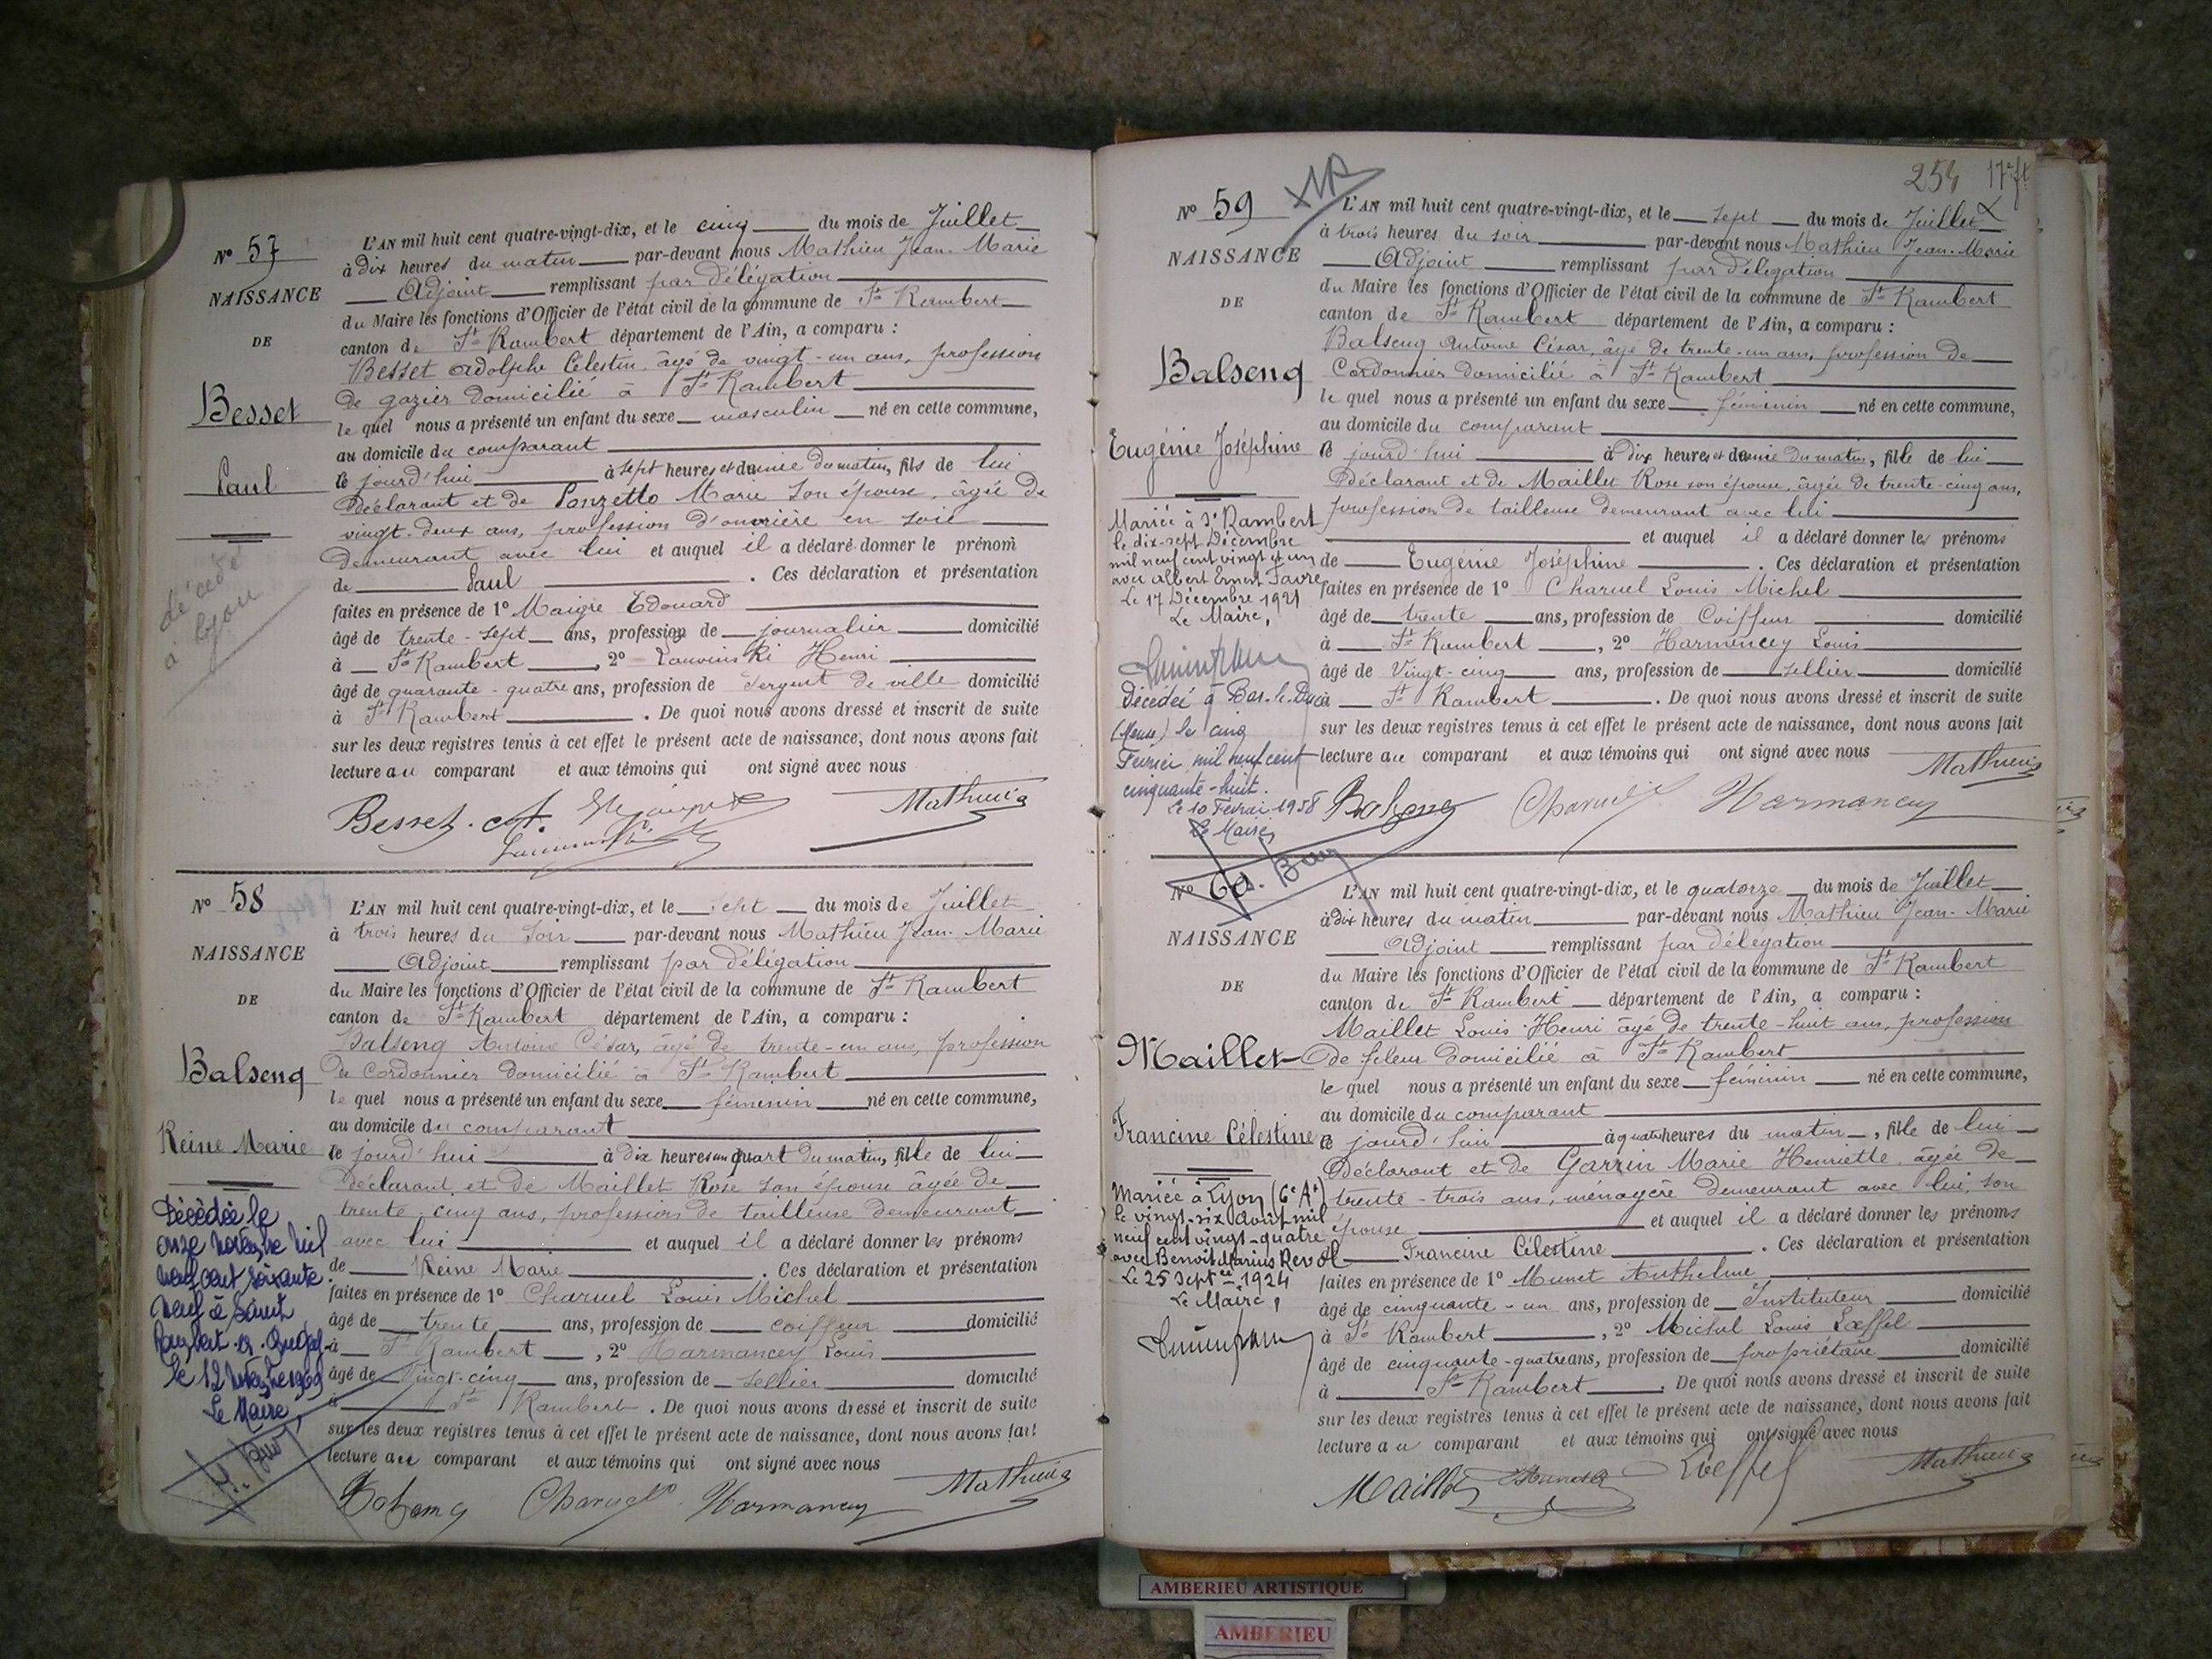 Nº 57
NAISSANCE
DE
Besset
Paul
décédé
a Lyon
L'AN mil huit cent quatre-vingt-dix, et le cinq du mois de Juillet
à dix heures du matin par-devant nous Mathieu Jean-Marie
Adjoint remplissant par délégation
du Maire les fonctions d'Officier de l'état civil de la commune de St Rambert
canton de St Rambert département de l'Ain, a comparu :
Besset Adolphe Célestin, âgé de vingt-un ans, profession
de gazier domicilié à St Rambert
le quel nous a présenté un enfant du sexe masculin né en cette commune,
au domicile du comparant
le jourd'hui à sept heures et demie du matin, fils de lui
déclarant et de Ponzetto Marie son épouse, âgée de
vingt-deux ans, profession d'ouvrière en soie
demeurant avec lui et auquel il a déclaré donner le prénom
de Paul . Ces déclaration et présentation
faites en présence de 1º Maigre Edouard
âgé de trente-sept ans, profession de journalier domicilié
à St Rambert , 2º Henri
âgé de quarante-quatre ans, profession de Sergent de ville domicilié
à St Rambert . De quoi nous avons dressé et inscrit de suite
sur les deux registres tenus à cet effet le présent acte de naissance, dont nous avons fait
lecture au comparant et aux témoins qui ont signé avec nous
Besset Mathieu
Nº 58
NAISSANCE
DE
Balseng
Reine Marie
Décédée le
onze novembre mil
neuf cent soixante
neuf à Saint
Rambert-en-Bugey
le 12 novembre 1969
Le Maire,
L'AN mil huit cent quatre-vingt-dix, et le sept du mois de Juillet
à trois heures du soir par-devant nous Mathieu Jean-Marie
Adjoint remplissant par délégation
du Maire les fonctions d'Officier de l'état civil de la commune de St Rambert
canton de St Rambert département de l'Ain, a comparu :
Balseng Antoine César, âgé de trente-un ans, profession
de cordonnier domicilié à St Rambert
le quel nous a présenté un enfant du sexe féminin né en cette commune,
au domicile du comparant
le jourd'hui à dix heures un quart du matin, fille de lui
déclarant et de Maillet Rose son épouse âgée de
trente-cinq ans, profession de tailleuse demeurant
avec lui et auquel il a déclaré donner les prénoms
de Reine Marie . Ces déclaration et présentation
faites en présence de 1º Charuel Louis Michel
âgé de trente ans, profession de coiffeur domicilié
à St Rambert , 2º Harmancey Louis
âgé de Vingt-cinq ans, profession de sellier domicilié
à St Rambert . De quoi nous avons dressé et inscrit de suite
sur les deux registres tenus à cet effet le présent acte de naissance, dont nous avons fait
lecture au comparant et aux témoins qui ont signé avec nous
Balseng Charuel Harmancey Mathieu
254
Nº 59
NAISSANCE
DE
Balseng
Eugénie Joséphine
Mariée à St Rambert
le dix-sept Décembre
mil neuf cent vingt et un
avec Albert Ernest Favre
Le 17 Décembre 1921
Le Maire,
Décédée à Bar-le-Duc
(Meuse) le cinq
Février mil neuf cent
cinquante-huit.
Le 10 Février 1958
Le Maire,
L'AN mil huit cent quatre-vingt-dix, et le sept du mois de Juillet
à trois heures du soir par-devant nous Mathieu Jean-Marie
Adjoint remplissant par délégation
du Maire les fonctions d'Officier de l'état civil de la commune de St Rambert
canton de St Rambert département de l'Ain, a comparu :
Balseng Antoine César, âgé de trente-un ans, profession de
Cordonnier domicilié à St Rambert
le quel nous a présenté un enfant du sexe féminin né en cette commune,
au domicile du comparant
le jourd'hui à dix heures et demie du matin, fille de lui
déclarant et de Maillet Rose son épouse, âgée de trente-cinq ans,
profession de tailleuse demeurant avec lui
et auquel il a déclaré donner les prénoms
de Eugénie Joséphine . Ces déclaration et présentation
faites en présence de 1º Charuel Louis Michel
âgé de trente ans, profession de Coiffeur domicilié
à St Rambert , 2º Harmancey Louis
âgé de Vingt-cinq ans, profession de sellier domicilié
à St Rambert . De quoi nous avons dressé et inscrit de suite
sur les deux registres tenus à cet effet le présent acte de naissance, dont nous avons fait
lecture au comparant et aux témoins qui ont signé avec nous
Balseng Charuel Harmancey Mathieu
Nº 60
NAISSANCE
DE
Maillet
Francine Célestine
Mariée à Lyon (6e At)
le vingt-six Avril mil
neuf cent vingt-quatre
avec Benoit Marius Revol
Le 25 Septre 1924
Le Maire,
L'AN mil huit cent quatre-vingt-dix, et le quatorze du mois de Juillet
à dix heures du matin par-devant nous Mathieu Jean-Marie
Adjoint remplissant par délégation
du Maire les fonctions d'Officier de l'état civil de la commune de St Rambert
canton de St Rambert département de l'Ain, a comparu :
Maillet Louis Henri âgé de trente-huit ans, profession
de fileur domicilié à St Rambert
le quel nous a présenté un enfant du sexe féminin né en cette commune,
au domicile du comparant
le jourd'hui à quatre heures du matin, fille de lui
déclarant et de Garrin Marie Henriette, âgée de
trente-trois ans, ménagère demeurant avec lui, son
épouse et auquel il a déclaré donner les prénoms
de Francine Célestine . Ces déclaration et présentation
faites en présence de 1º Munet Anthelme
âgé de cinquante-un ans, profession de Instituteur domicilié
à St Rambert , 2º Michel Louis Lœffel
âgé de cinquante-quatre ans, profession de propriétaire domicilié
à St Rambert . De quoi nous avons dressé et inscrit de suite
sur les deux registres tenus à cet effet le présent acte de naissance, dont nous avons fait
lecture au comparant et aux témoins qui ont signé avec nous
Maillet Munet Lœffel Mathieu
AMBERIEU ARTISTIQUE
AMBERIEU